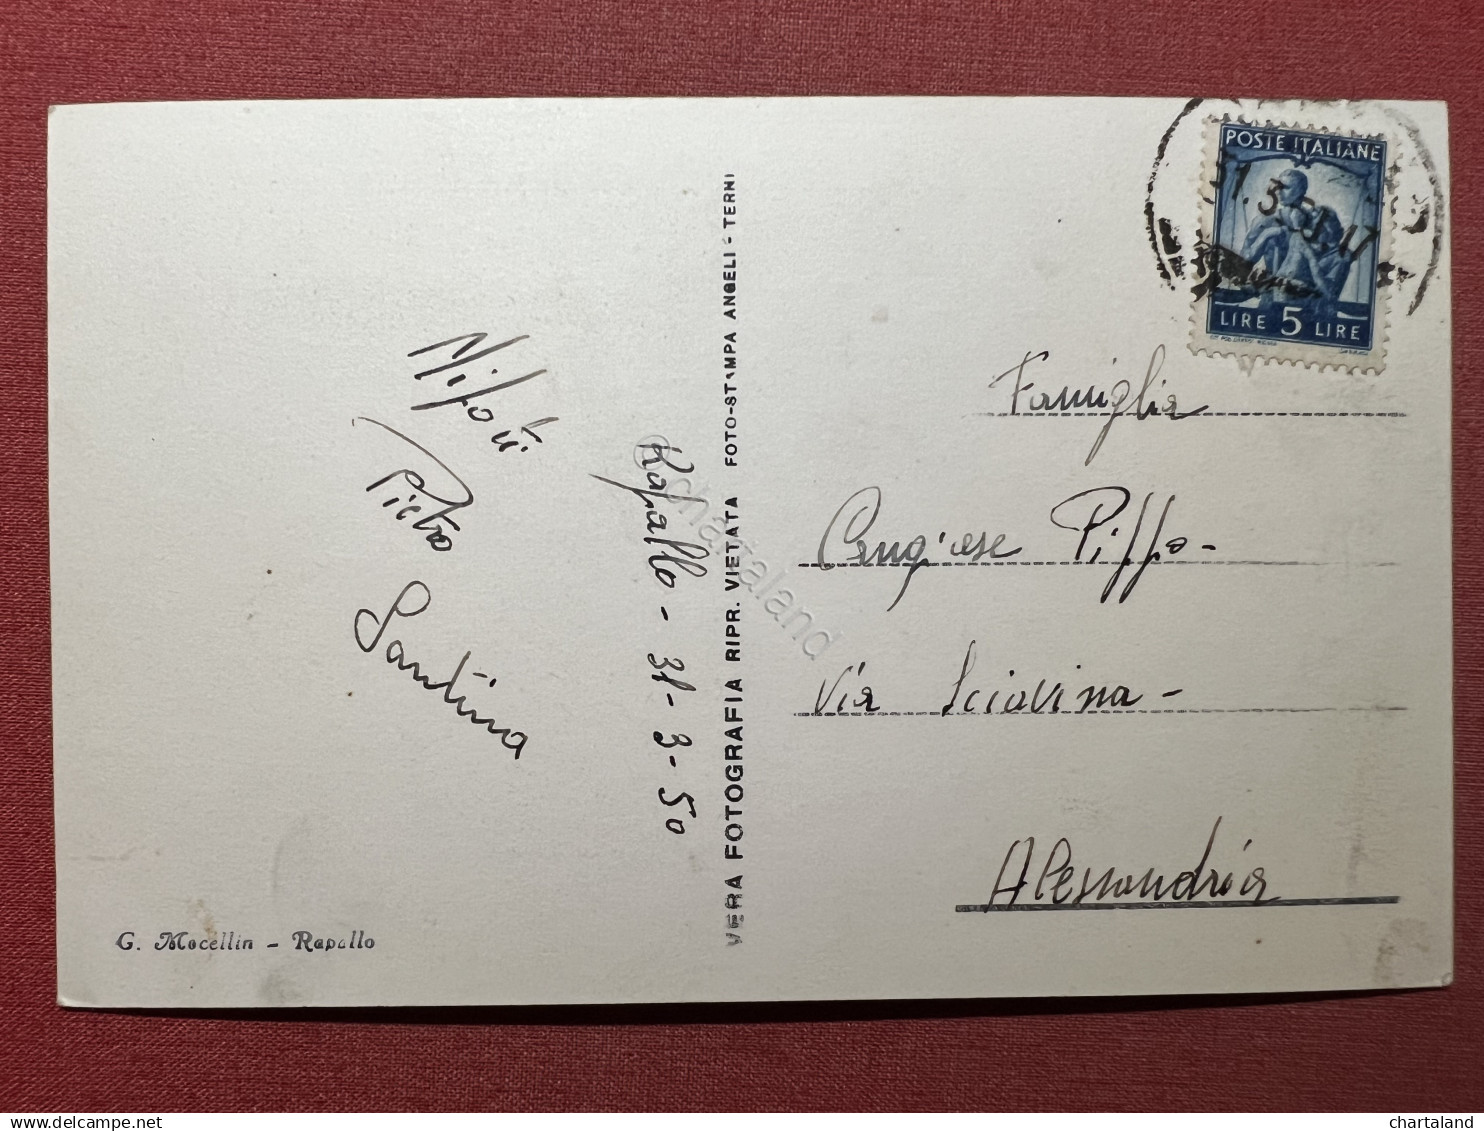 POSTE ITALIANE
31.3.50.17
LIRE 5 LIRE
Famiglia
Piffo-
Via Sciavina-
Alessandria
Nipoti
Pietro
Santina
Rapallo - 31-3-50
VERA FOTOGRAFIA RIPR. VIETATA FOTO-STAMPA ANGELI - TERNI
G. Mocellin - Rapallo
© chartaland
chartaland
delcampe.net